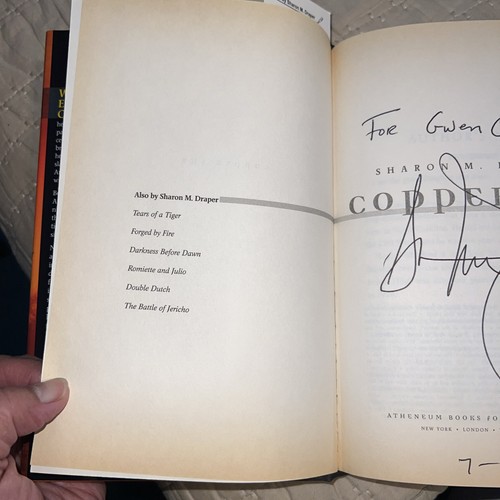 by Sharon M. Draper
Also by Sharon M. Draper
Tears of a Tiger
Forged by Fire
Darkness Before Dawn
Romiette and Julio
Double Dutch
The Battle of Jericho
For Gwen
SHARON M.
COPPER
ATHENEUM BOOKS FO
NEW YORK • LONDON •
7-